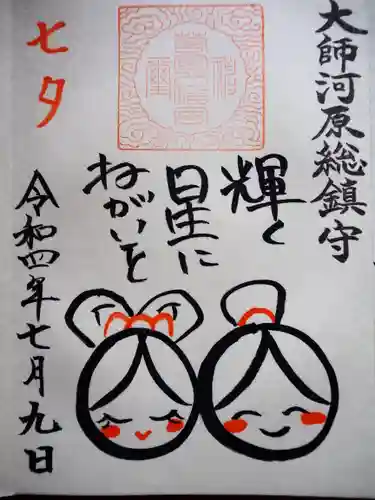 大師河原総鎮守
輝く
星に
ねがいを
七夕
令和四年七月九日